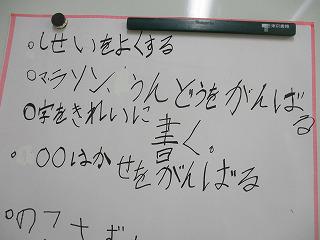 ○しせいをよくする
○マラソン、うんどうをがんばる
○字をきれいに書く。
○○○はかせをがんばる